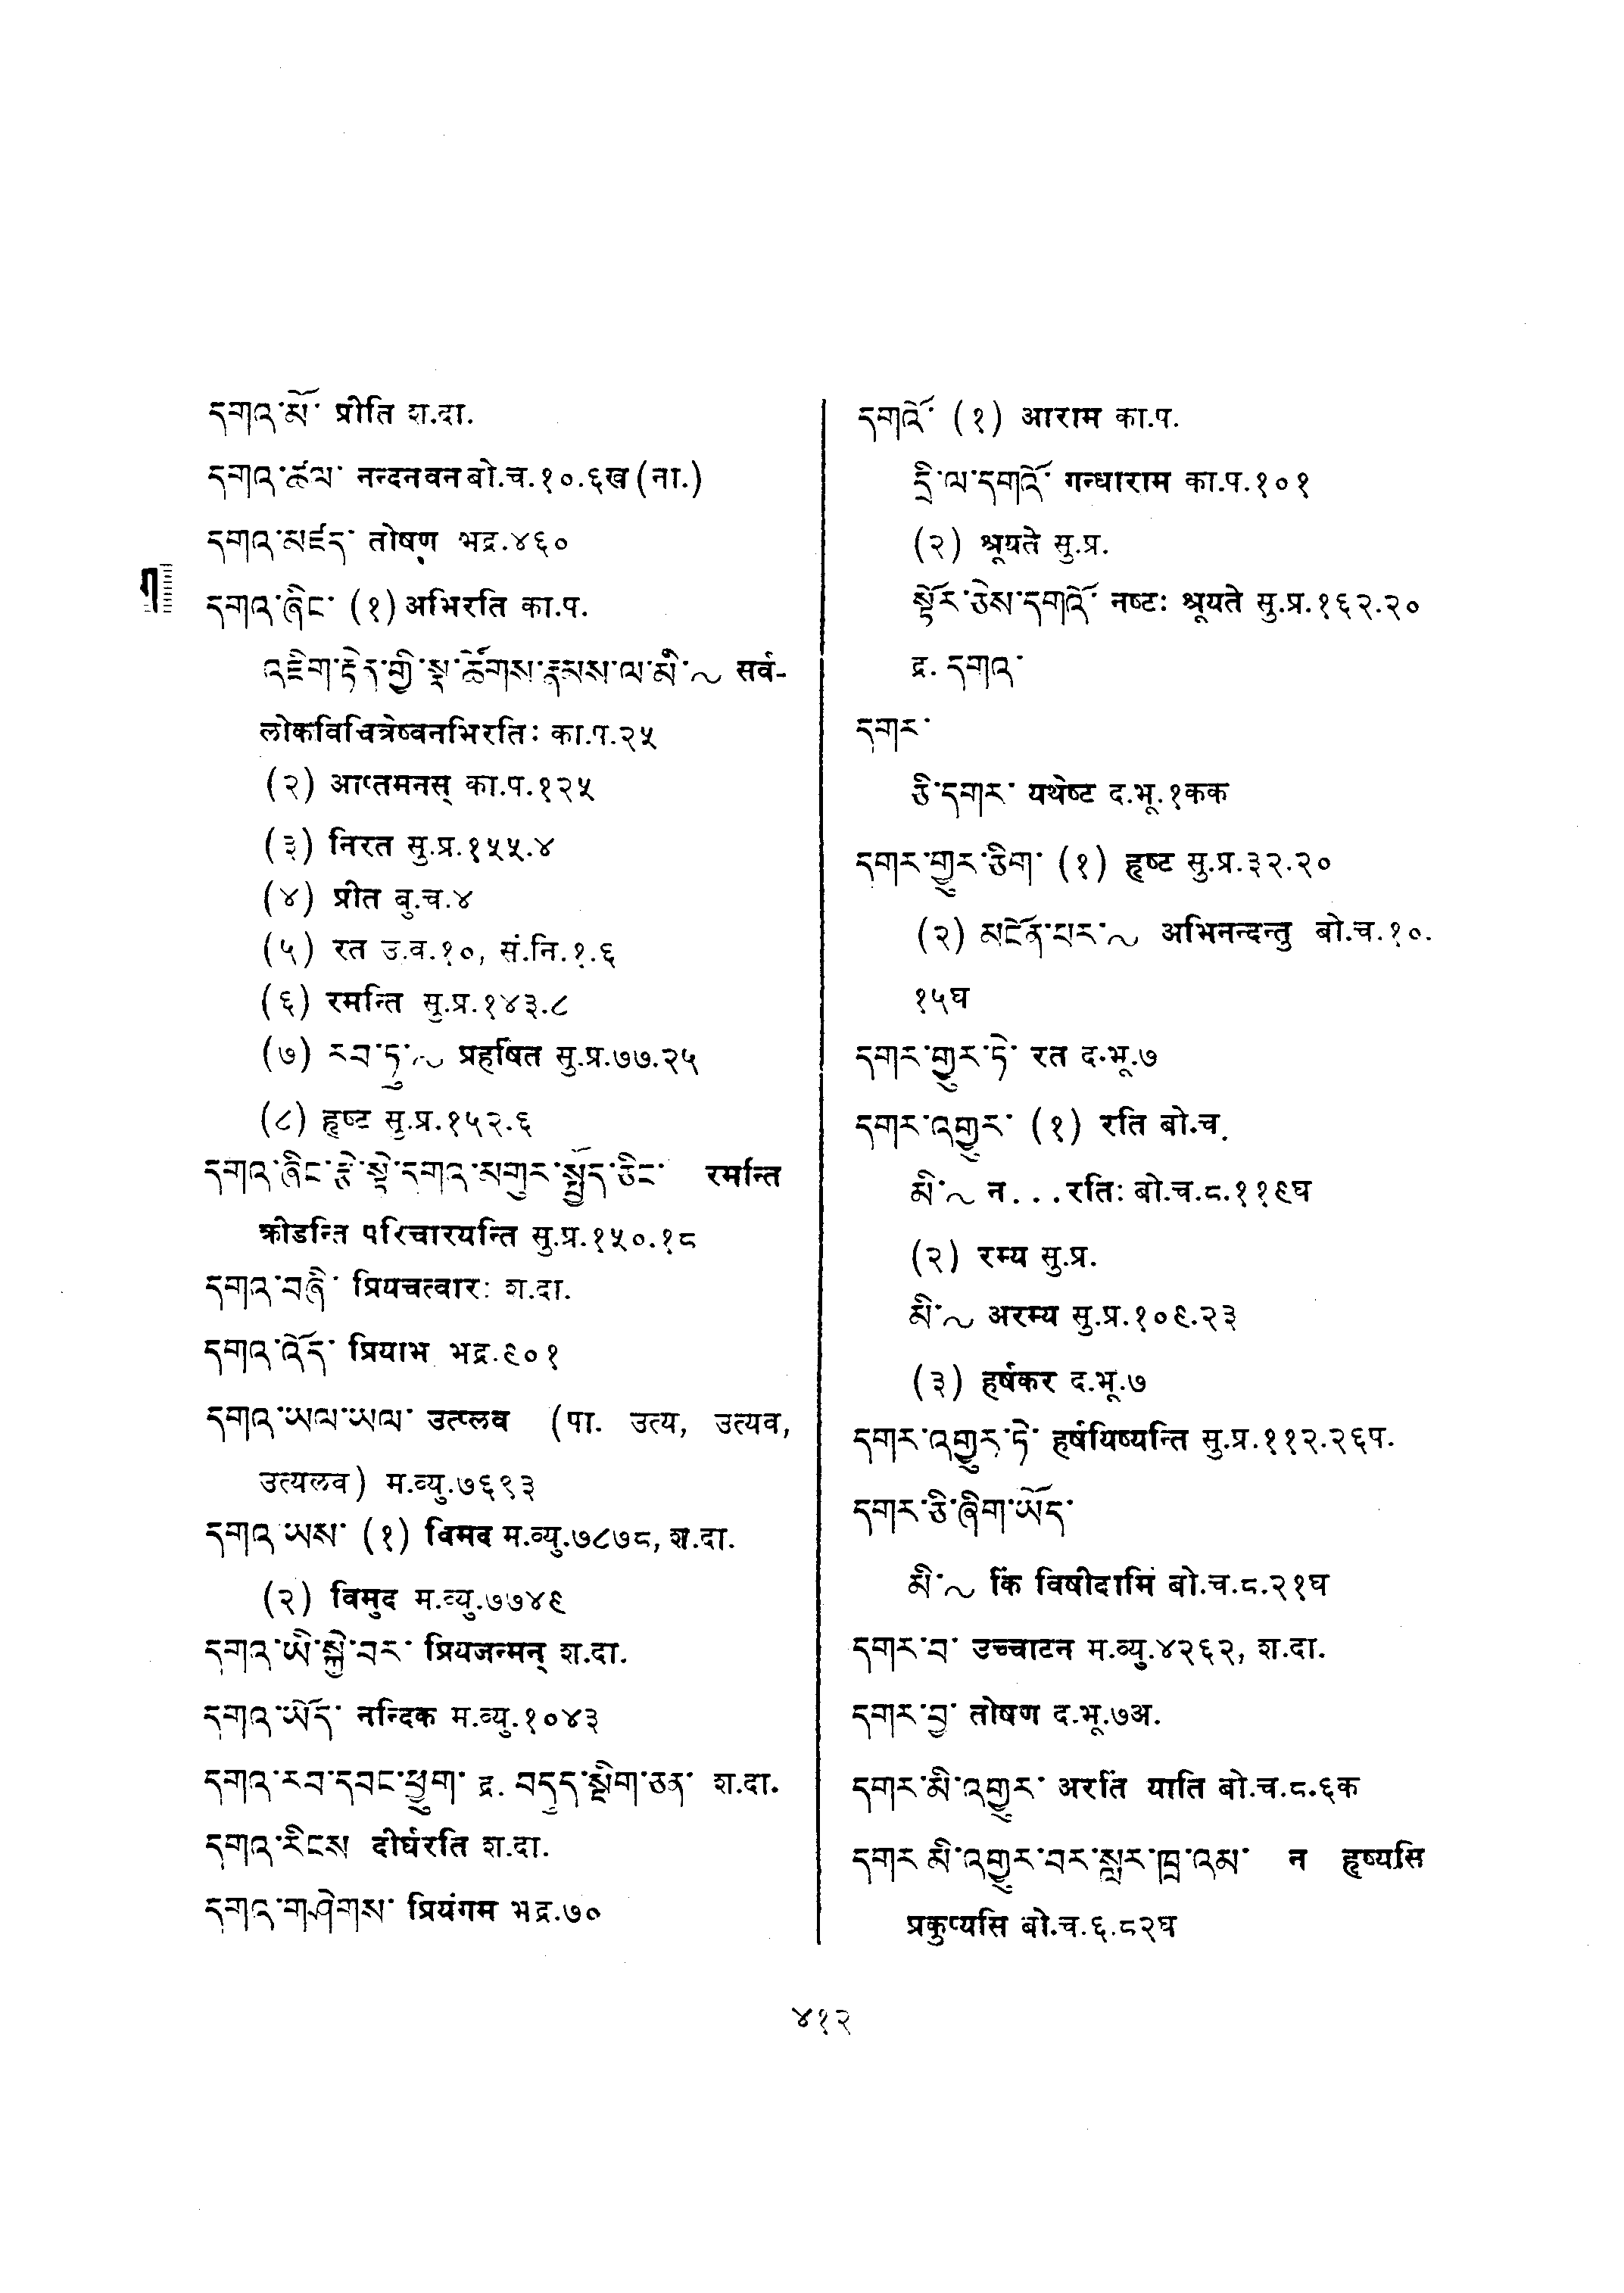 དགའ་མོ་ प्रीति श.दा.
དགའ་ཚལ་ नन्दनवन बो.च.१०.६ख (ना.)
དགའ་མཛད་ तोषण भद्र.४६०
དགའ་ཞིང་ (१) अभिरति का.प.
འཇིག་རྟེན་གྱི་སྣ་ཚོགས་རྣམས་ལ་མི་~ सर्व-
लोकविचित्रेष्वनभिरतिः का.प.२५
(२) आप्तमनस् का.प.१२५
(३) निरत सु.प्र.१५५.४
(४) प्रीत बु.च.४
(५) रत उ.व.१०, सं.नि.१.६
(६) रमन्ति सु.प्र.१४३.८
(७) རབ་ཏུ་~ प्रहर्षित सु.प्र.७७.२५
(८) हृष्ट सु.प्र.१५२.६
དགའ་ཞིང་རྩེ་སྟེ་དགའ་མགུར་སྤྱོད་ཅིང་ रमन्ति
क्रीडन्ति परिचारयन्ति सु.प्र.१५०.१८
དགའ་བཞི་ प्रियचत्वारः श.दा.
དགའ་འོད་ प्रियाभ भद्र.९०१
དགའ་ཡལ་ཡལ་ उत्प्लव (पा. उत्य, उत्यव,
उत्यलव) म.व्यु.७६९३
དགའ་ཡས་ (१) विमद म.व्यु.७८७८, श.दा.
(२) विमुद म.व्यु.७७४९
དགའ་ཡི་སྐྱེ་བར་ प्रियजन्मन् श.दा.
དགའ་ཡོད་ नन्दिक म.व्यु.१०४३
དགའ་རབ་དབང་ཕྱུག་ द्र. བདུད་སྡིག་ཅན་ श.दा.
དགའ་རིངས དीर्घरति श.दा.
དགའ་གཤེགས་ प्रियंगम भद्र.७०
ག
དགའོ་ (१) आराम का.प.
དྲི་ལ་དགའོ་ गन्धाराम का.प.१०१
(२) श्रूयते सु.प्र.
སྟོར་ཅེས་དགའོ་ नष्टः श्रूयते सु.प्र.१६२.२०
द्र. དགའ་
དགར་
ཅི་དགར་ यथेष्ट द.भू.१कक
དགར་གྱུར་ཅིག་ (१) हृष्ट सु.प्र.३२.२०
(२) མངོན་པར་~ अभिनन्दन्तु बो.च.१०.
१५घ
དགར་གྱུར་ཏེ་ रत द.भू.७
དགར་འགྱུར་ (१) रति बो.च.
མི་~ न...रतिः बो.च.८.११९घ
(२) रम्य सु.प्र.
མི་~ अरम्य सु.प्र.१०९.२३
(३) हर्षकर द.भू.७
དགར་འགྱུར་ཏེ་ हर्षयिष्यन्ति सु.प्र.११२.२६प.
དགར་ཅི་ཞིག་ཡོད་
མི་~ किं विषीदामि बो.च.८.२१घ
དགར་བ་ उच्चाटन म.व्यु.४२६२, श.दा.
དགར་བྱ་ तोषण द.भू.७अ.
དགར་མི་འགྱུར་ अरतिं याति बो.च.८.६क
དགར་མི་འགྱུར་བར་སླར་ཁྲོ་འམ་ न हृष्यसि
प्रकुप्यसि बो.च.६.८२घ
४१२